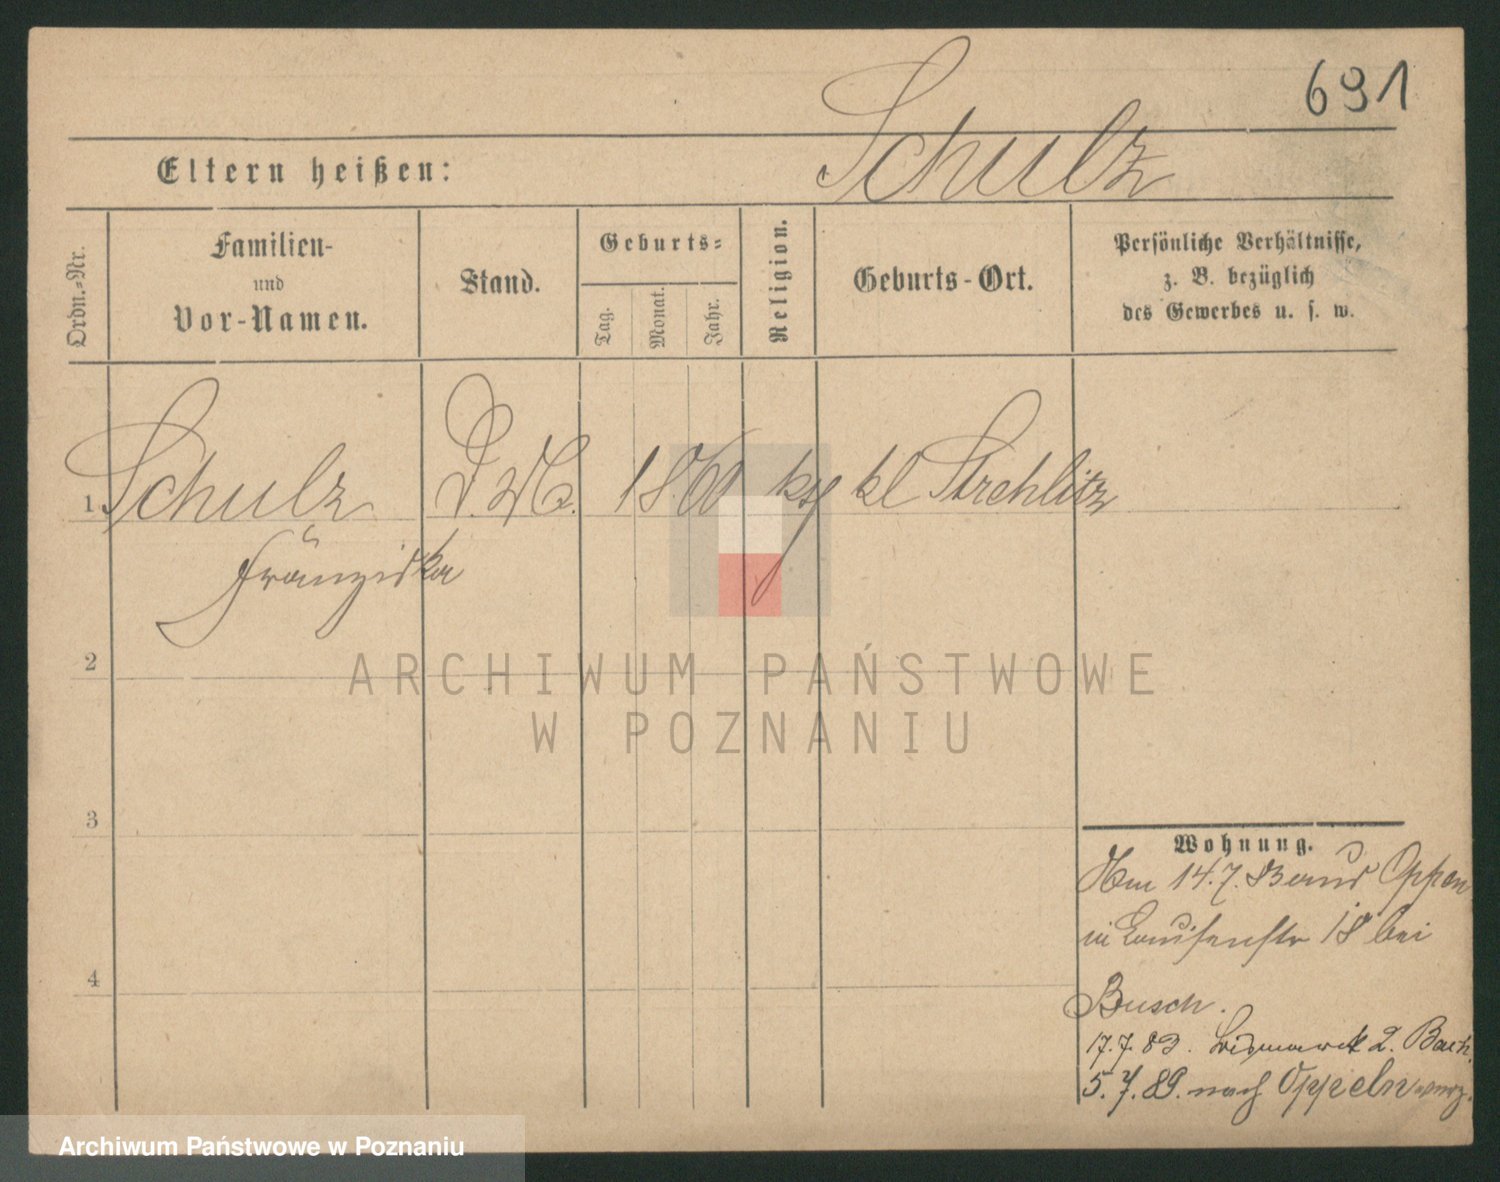 691
Schulz
Eltern heißen:
Ordn.-Nr.
Familien-
und
Vor-Namen.
Stand.
Geburts-
Tag.
Monat.
Jahr.
Religion.
Geburts-Ort.
Persönliche Verhältnisse,
z. B. bezüglich
des Gewerbes u. s. w.
1. Schulz 1860 kl Strehlitz
Franziska
2
3
4
ARCHIWUM PAŃSTWOWE
W POZNANIU
Wohnung.
14.7. 83 Oppeln
Louisenstr 18 bei
Busch.
17.7.83. Bismarck 2. Bach.
5.7.89. nach Oppeln
Archiwum Państwowe w Poznaniu